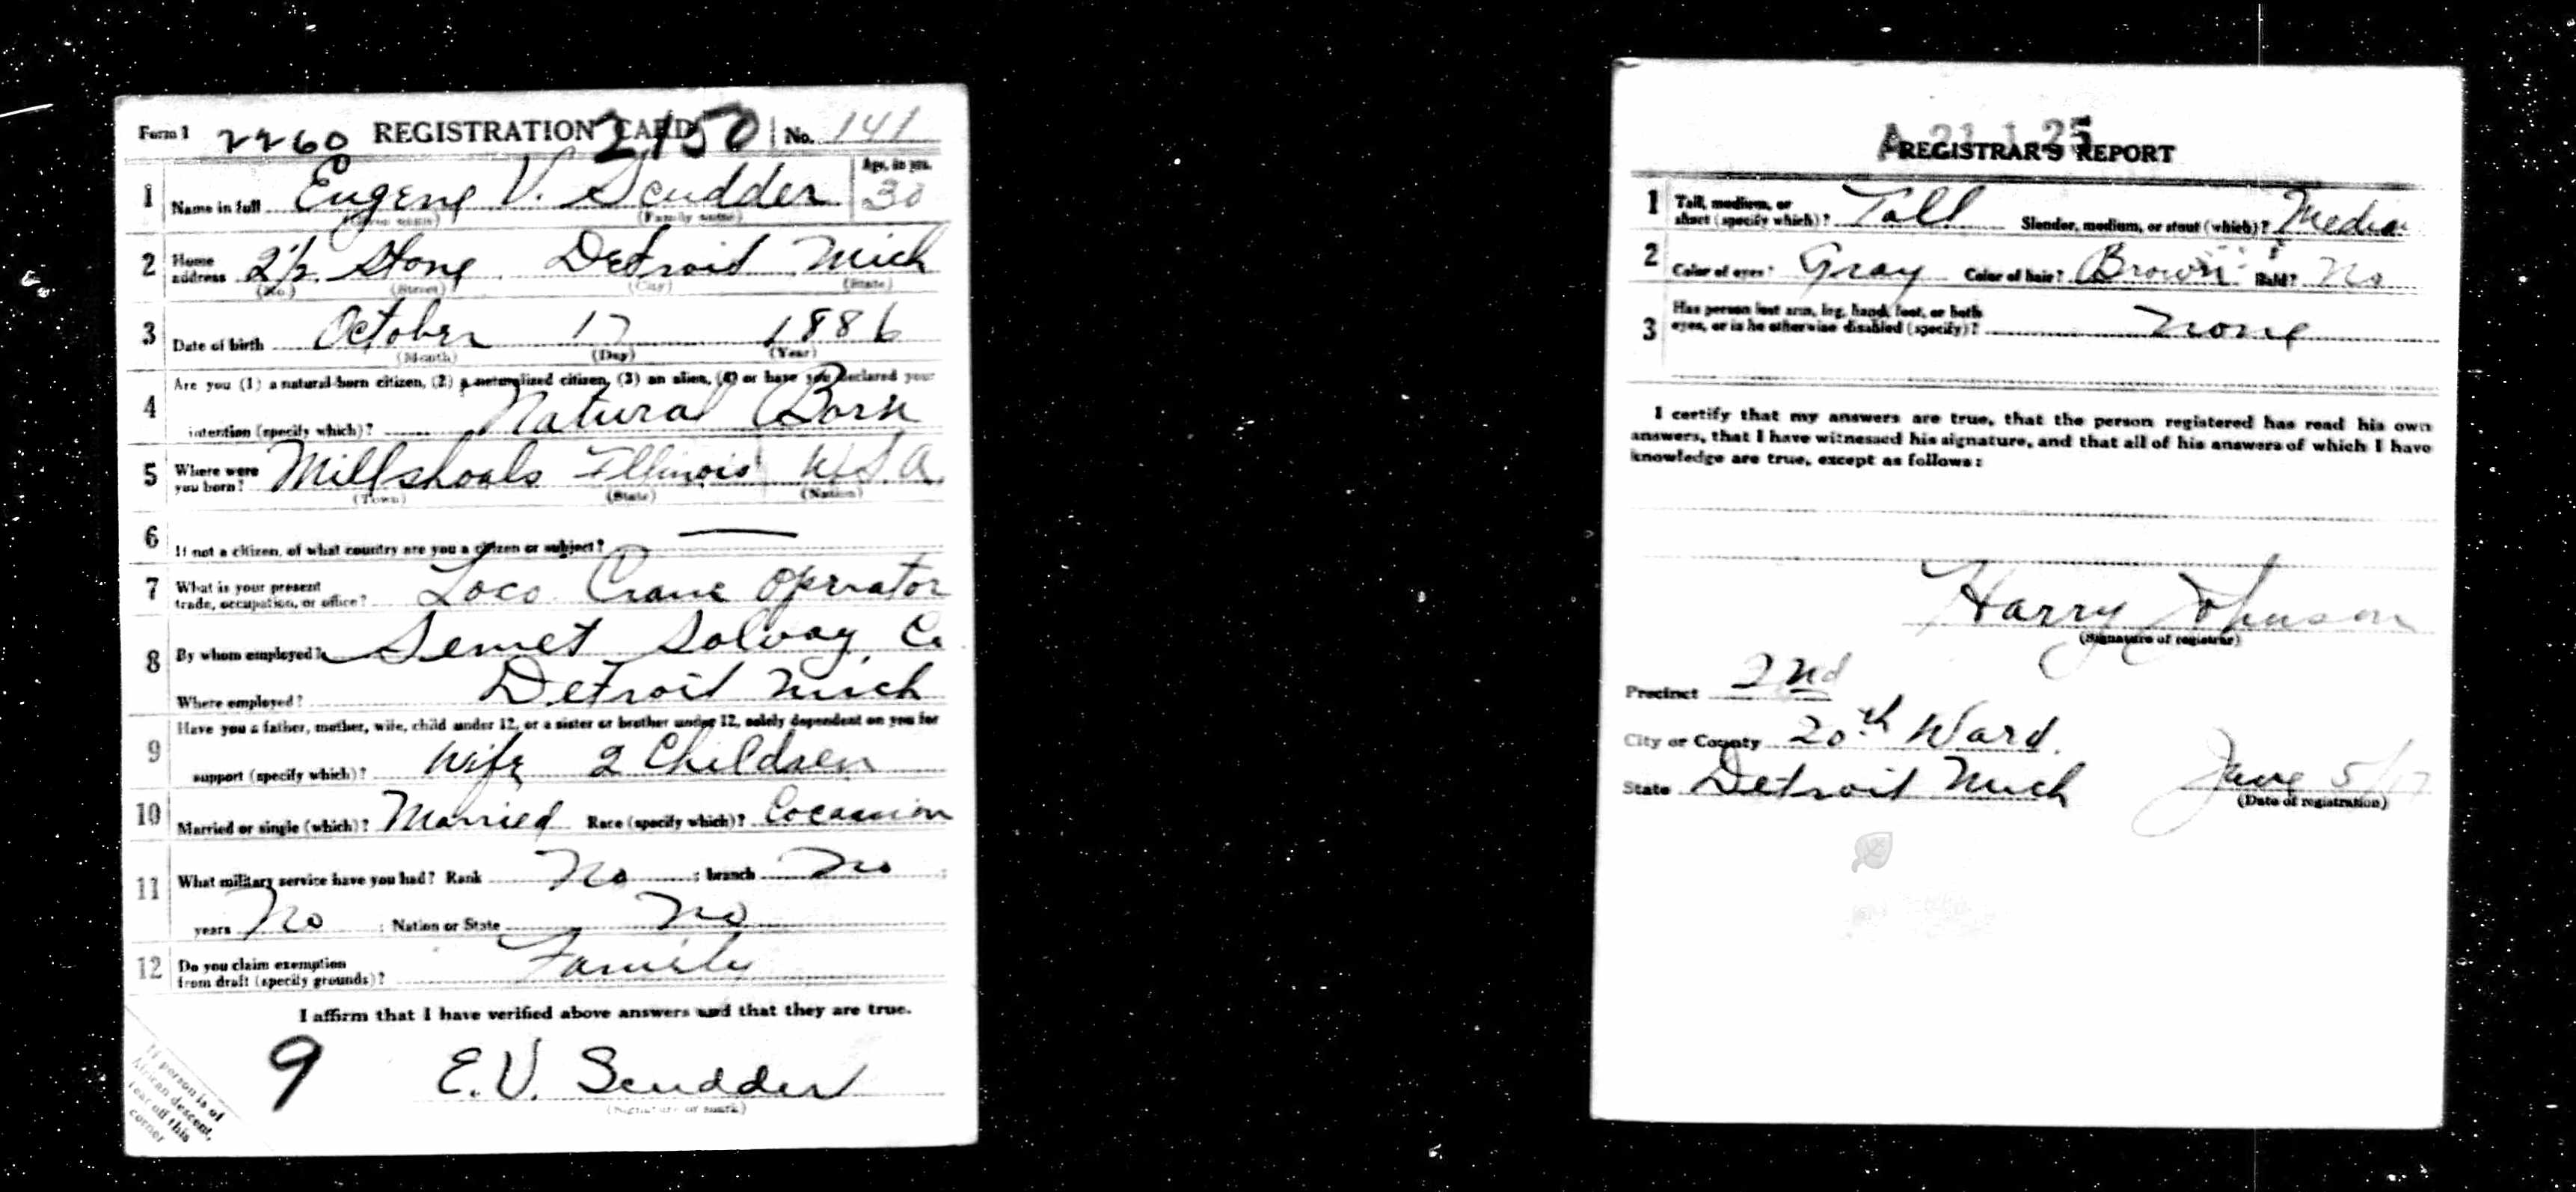 Form 1 2260 REGISTRATION CARD 2150 No. 141
1 Name in full Eugene V. Scudder Age, in yrs. 30
(Given name) (Family name)
2 Home address 2 1/2 Stone Detroit Mich
(No.) (Street) (City) (State)
3 Date of birth October 17 1886
(Month) (Day) (Year)
Are you (1) a natural-born citizen, (2) a naturalized citizen, (3) an alien, (4) or have you declared your
4 intention (specify which)? Natural Born
5 Where were you born? Millshoals Illinois U.S.A.
(Town) (State) (Nation)
6 If not a citizen, of what country are you a citizen or subject? —
7 What is your present trade, occupation, or office? Loco. Crane Oprator
8 By whom employed? Semet Solvay Co
Where employed? Detroit Mich
Have you a father, mother, wife, child under 12, or a sister or brother under 12, solely dependent on you for
9 support (specify which)? Wife 2 Children
10 Married or single (which)? Married Race (specify which)? Cocasion
11 What military service have you had? Rank No ; branch No ;
years No ; Nation or State No
12 Do you claim exemption from draft (specify grounds)? Family
I affirm that I have verified above answers and that they are true.
9 E.V. Scudder
(Signature or mark)
If person is of
African descent,
tear off this
corner
REGISTRAR'S REPORT
1 Tall, medium, or short (specify which)? Tall Slender, medium, or stout (which)? Medium
2 Color of eyes? Gray Color of hair? Brown Bald? No
3 Has person lost arm, leg, hand, foot, or both eyes, or is he otherwise disabled (specify)? None
I certify that my answers are true, that the person registered has read his own
answers, that I have witnessed his signature, and that all of his answers of which I have
knowledge are true, except as follows:
Harry Johnson
(Signature of registrar)
Precinct 2nd
City or County 20th Ward.
State Detroit Mich June 5/17
(Date of registration)